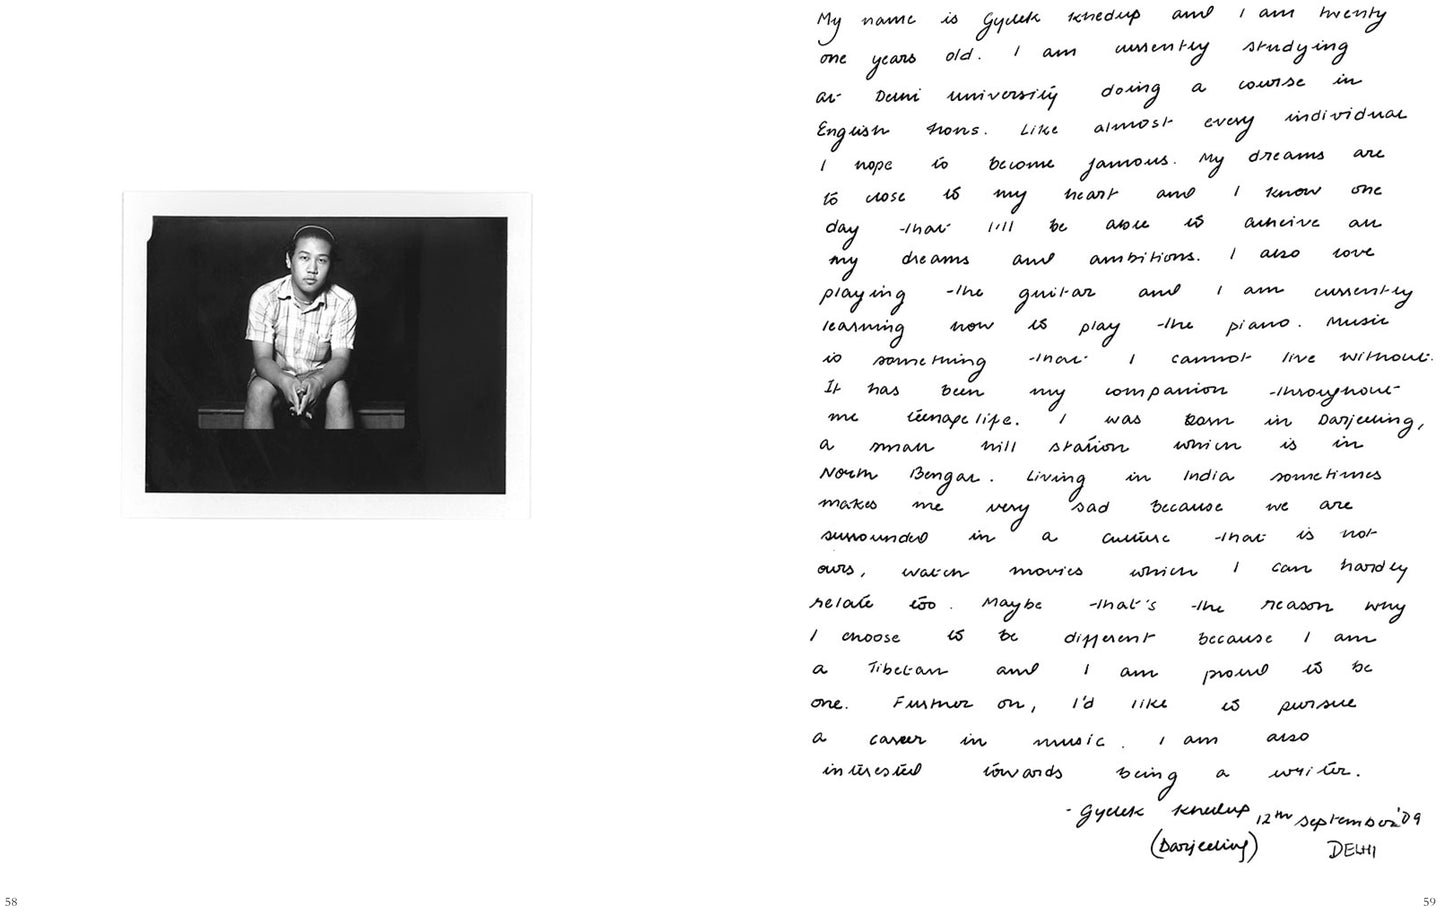 My name is Gyelek Khedup and I am twenty
one years old. I am currently studying
at Delhi university doing a course in
English hons. Like almost every individual
I hope to become famous. My dreams are
to close to my heart and I know one
day that I'll be able to acheive all
my dreams and ambitions. I also love
playing the guitar and I am currently
learning how to play the piano. Music
is something that I cannot live without.
It has been my companion throughout
me teenage life. I was Born in Darjeeling,
a small hill station which is in
North Bengal. Living in India sometimes
makes me very sad because we are
surrounded in a culture that is not
ours, watch movies which I can hardly
relate too. Maybe that's the reason why
I choose to be different because I am
a Tibetan and I am proud to be
one. Further on, I'd like to pursue
a career in music. I am also
interested towards being a writer.
- Gyelek Khedup 12th September '09
(Darjeeling) DELHI
58
59